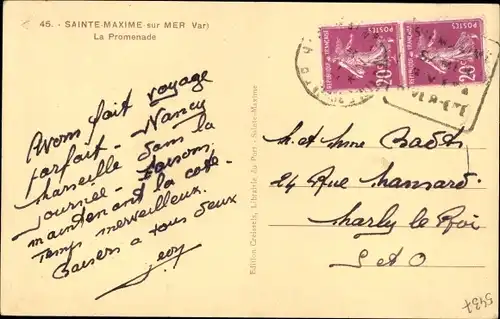 45. - SAINTE-MAXIME-sur MER Var)
La Promenade
Avons fait voyage
parfait - Nancy
Marseille dans la
journée - Faisons
maintenant la cote -
Temps merveilleux.
Baisers a tous deux
Edition Creissels, Librairie du Port - Sainte-Maxime
REPUBLIQUE FRANÇAISE
POSTES
20c
REPUBLIQUE FRANÇAISE
POSTES
20c
M. et Mme
24 Rue Mansard.
Marly le Roi
S et O
5437